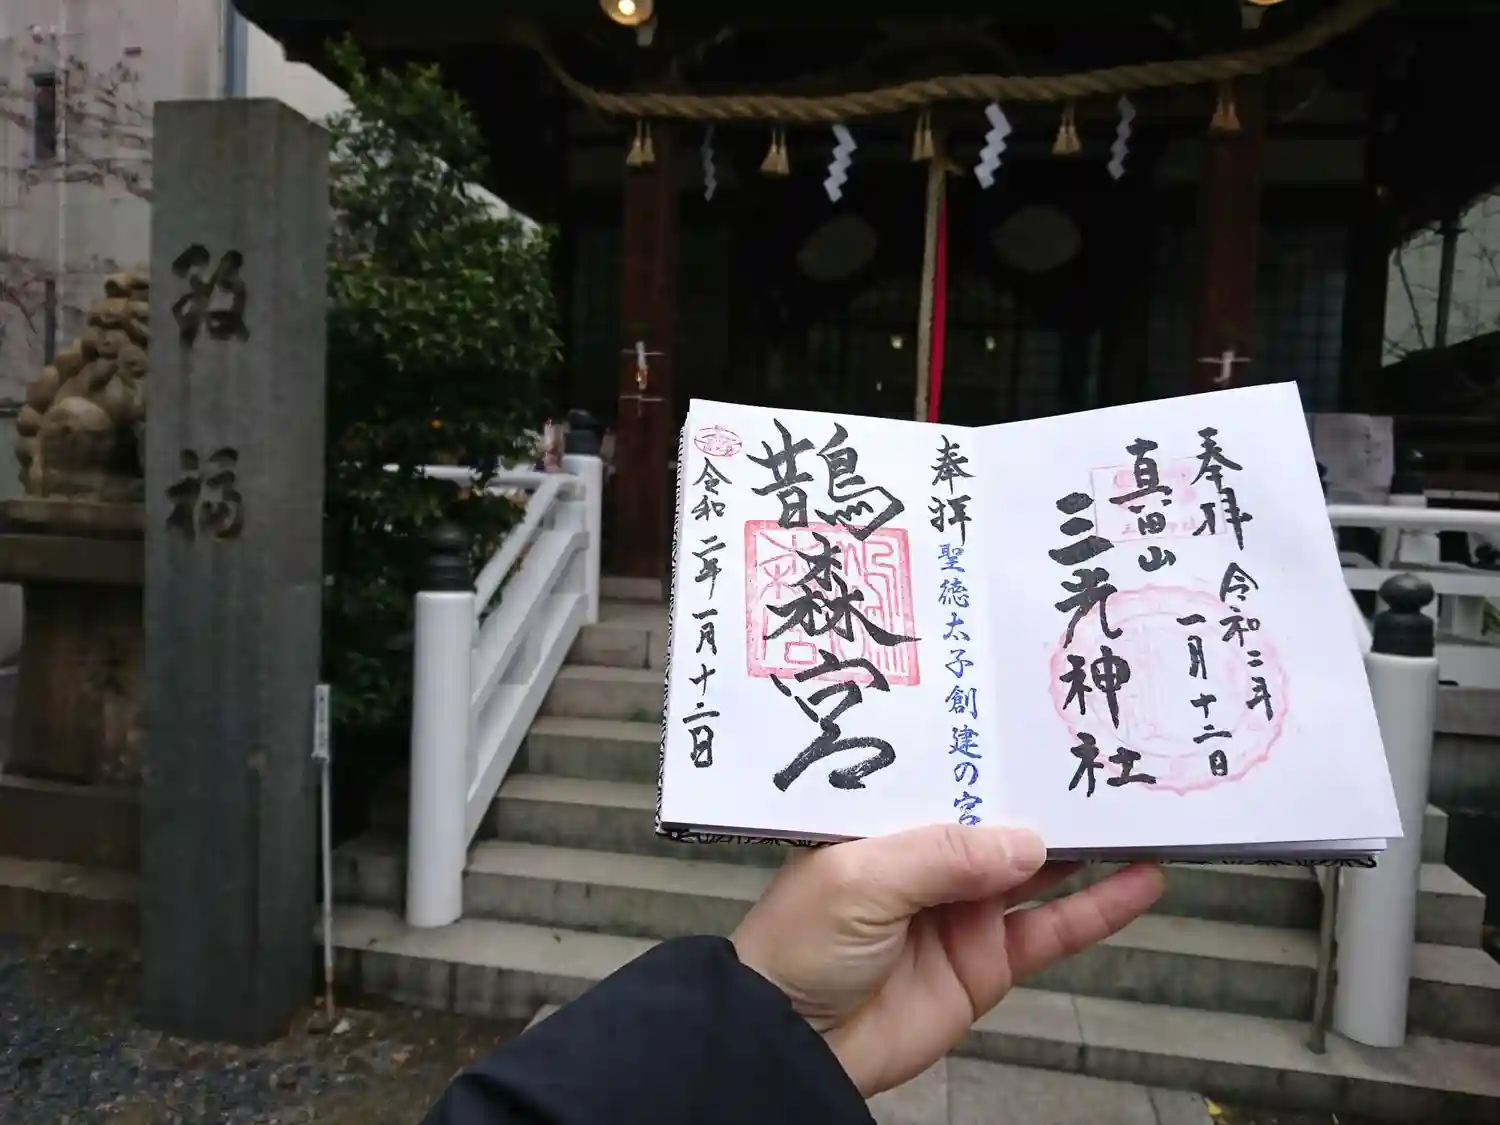 致福
奉拝
令和二年
一月十二日
真田山
三光神社
奉拝
聖徳太子創建の宮
鵲森宮
令和二年一月十二日